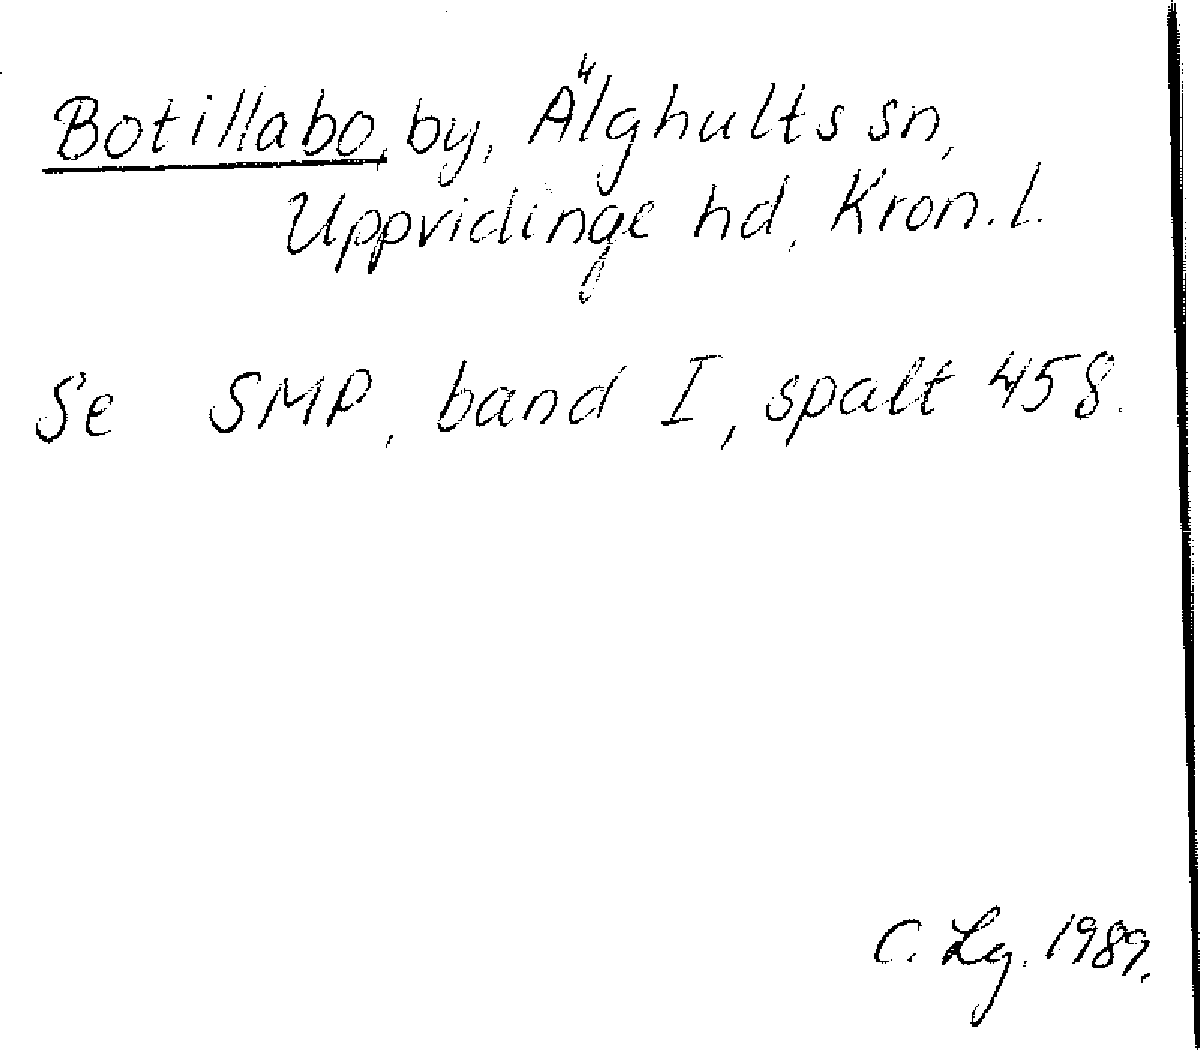 Botillabo, by, Älghults sn,
Uppvidinge hd, Kron. l.
Se SMP, band I, spalt 458.
C. Lg. 1989.